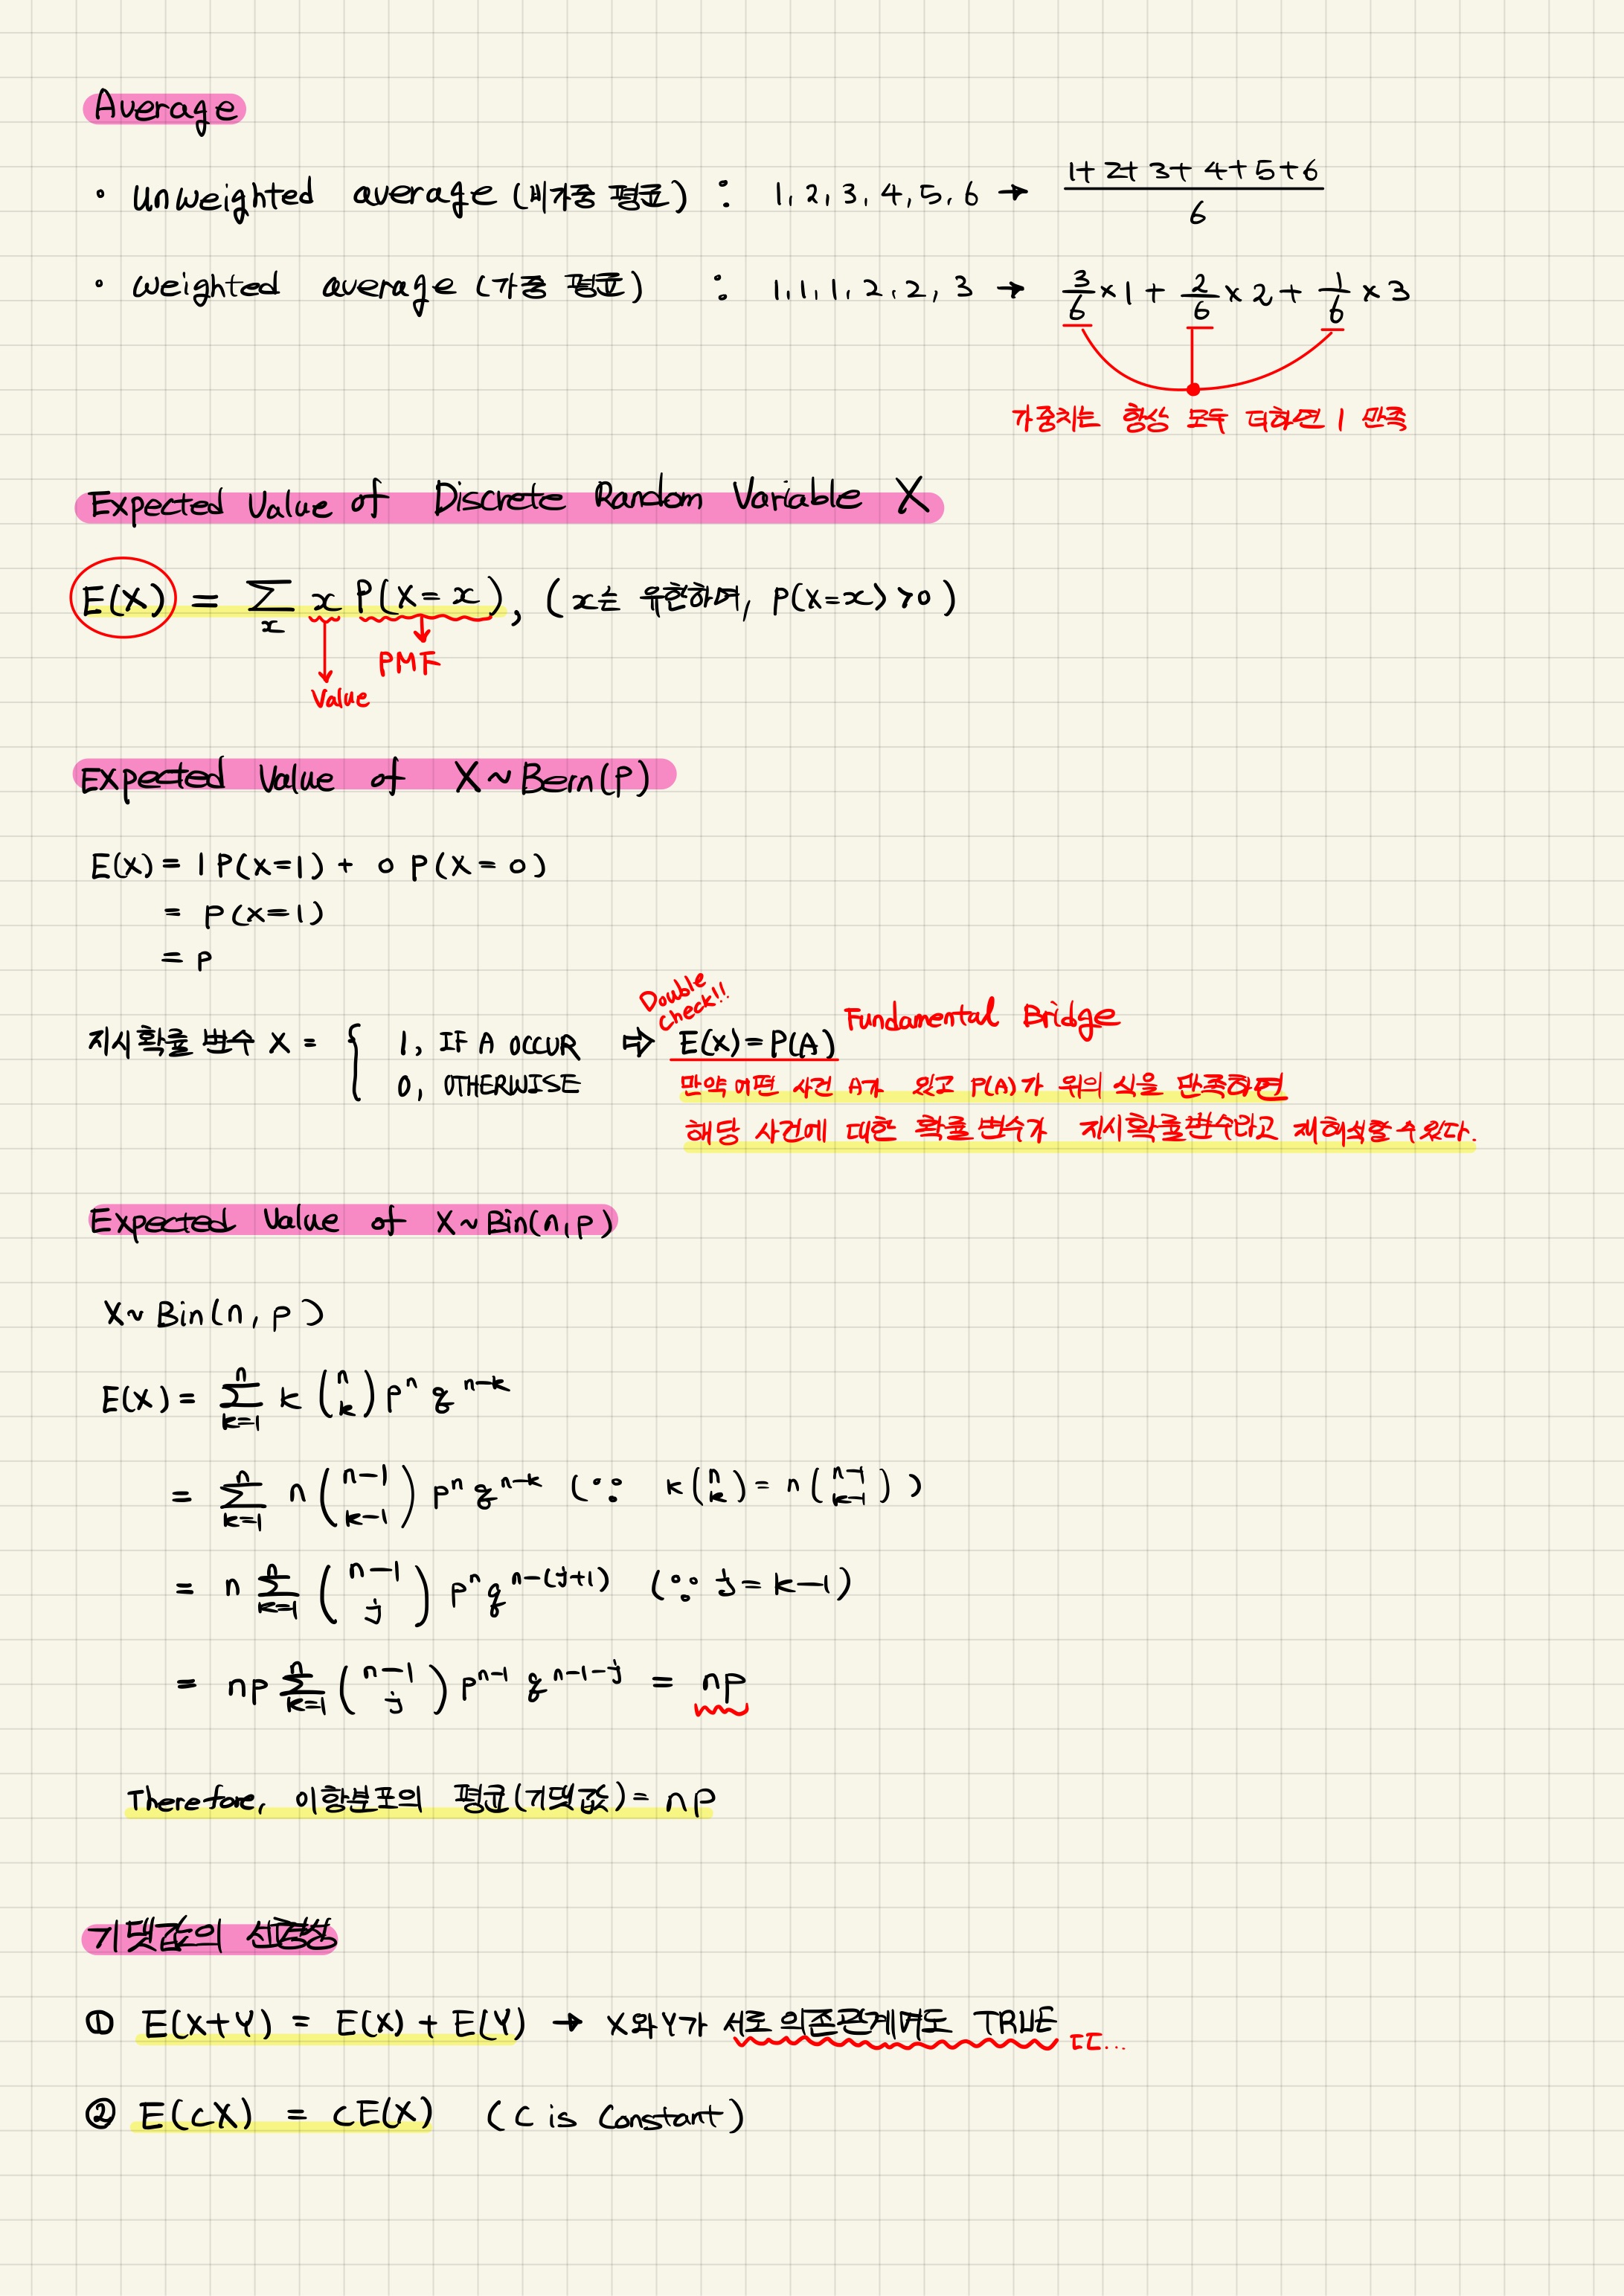 Average
• unweighted average (비가중 평균) : 1, 2, 3, 4, 5, 6 → (1+2+3+4+5+6)/6
• weighted average (가중 평균) : 1, 1, 1, 2, 2, 3 → 3/6 × 1 + 2/6 × 2 + 1/6 × 3
가중치는 항상 모두 더하면 1 만족
Expected Value of Discrete Random Variable X
E(X) = ∑_x x P(X=x), (x는 유한하며, P(X=x) > 0)
PMF
Value
Expected Value of X~Bern(P)
E(X) = 1 P(X=1) + 0 P(X=0)
= P(X=1)
= P
Double Check!!
Fundamental Bridge
지시확률 변수 X = { 1, IF A OCCUR ⇨ E(X)=P(A)
0, OTHERWISE
만약 어떤 사건 A가 있고 P(A)가 위의 식을 만족하면
해당 사건에 대한 확률 변수가 지시확률변수라고 재해석할 수 있다.
Expected Value of X~Bin(n,p)
X~Bin(n, p)
E(X) = ∑_{k=1}^{n} k (n k) p^n q^{n-k}
= ∑_{k=1}^{n} n (n-1 k-1) p^n q^{n-k} (∵ k(n k) = n(n-1 k-1))
= n ∑_{k=1}^{n} (n-1 j) p^n q^{n-(j+1)} (∵ j = k-1)
= np ∑_{k=1}^{n} (n-1 j) p^{n-1} q^{n-1-j} = np
Therefore, 이항분포의 평균(기댓값) = np
기댓값의 선형성
① E(X+Y) = E(X) + E(Y) → X와 Y가 서로 의존관계여도 TRUE ㄷㄷ...
② E(cX) = cE(X) (C is Constant)